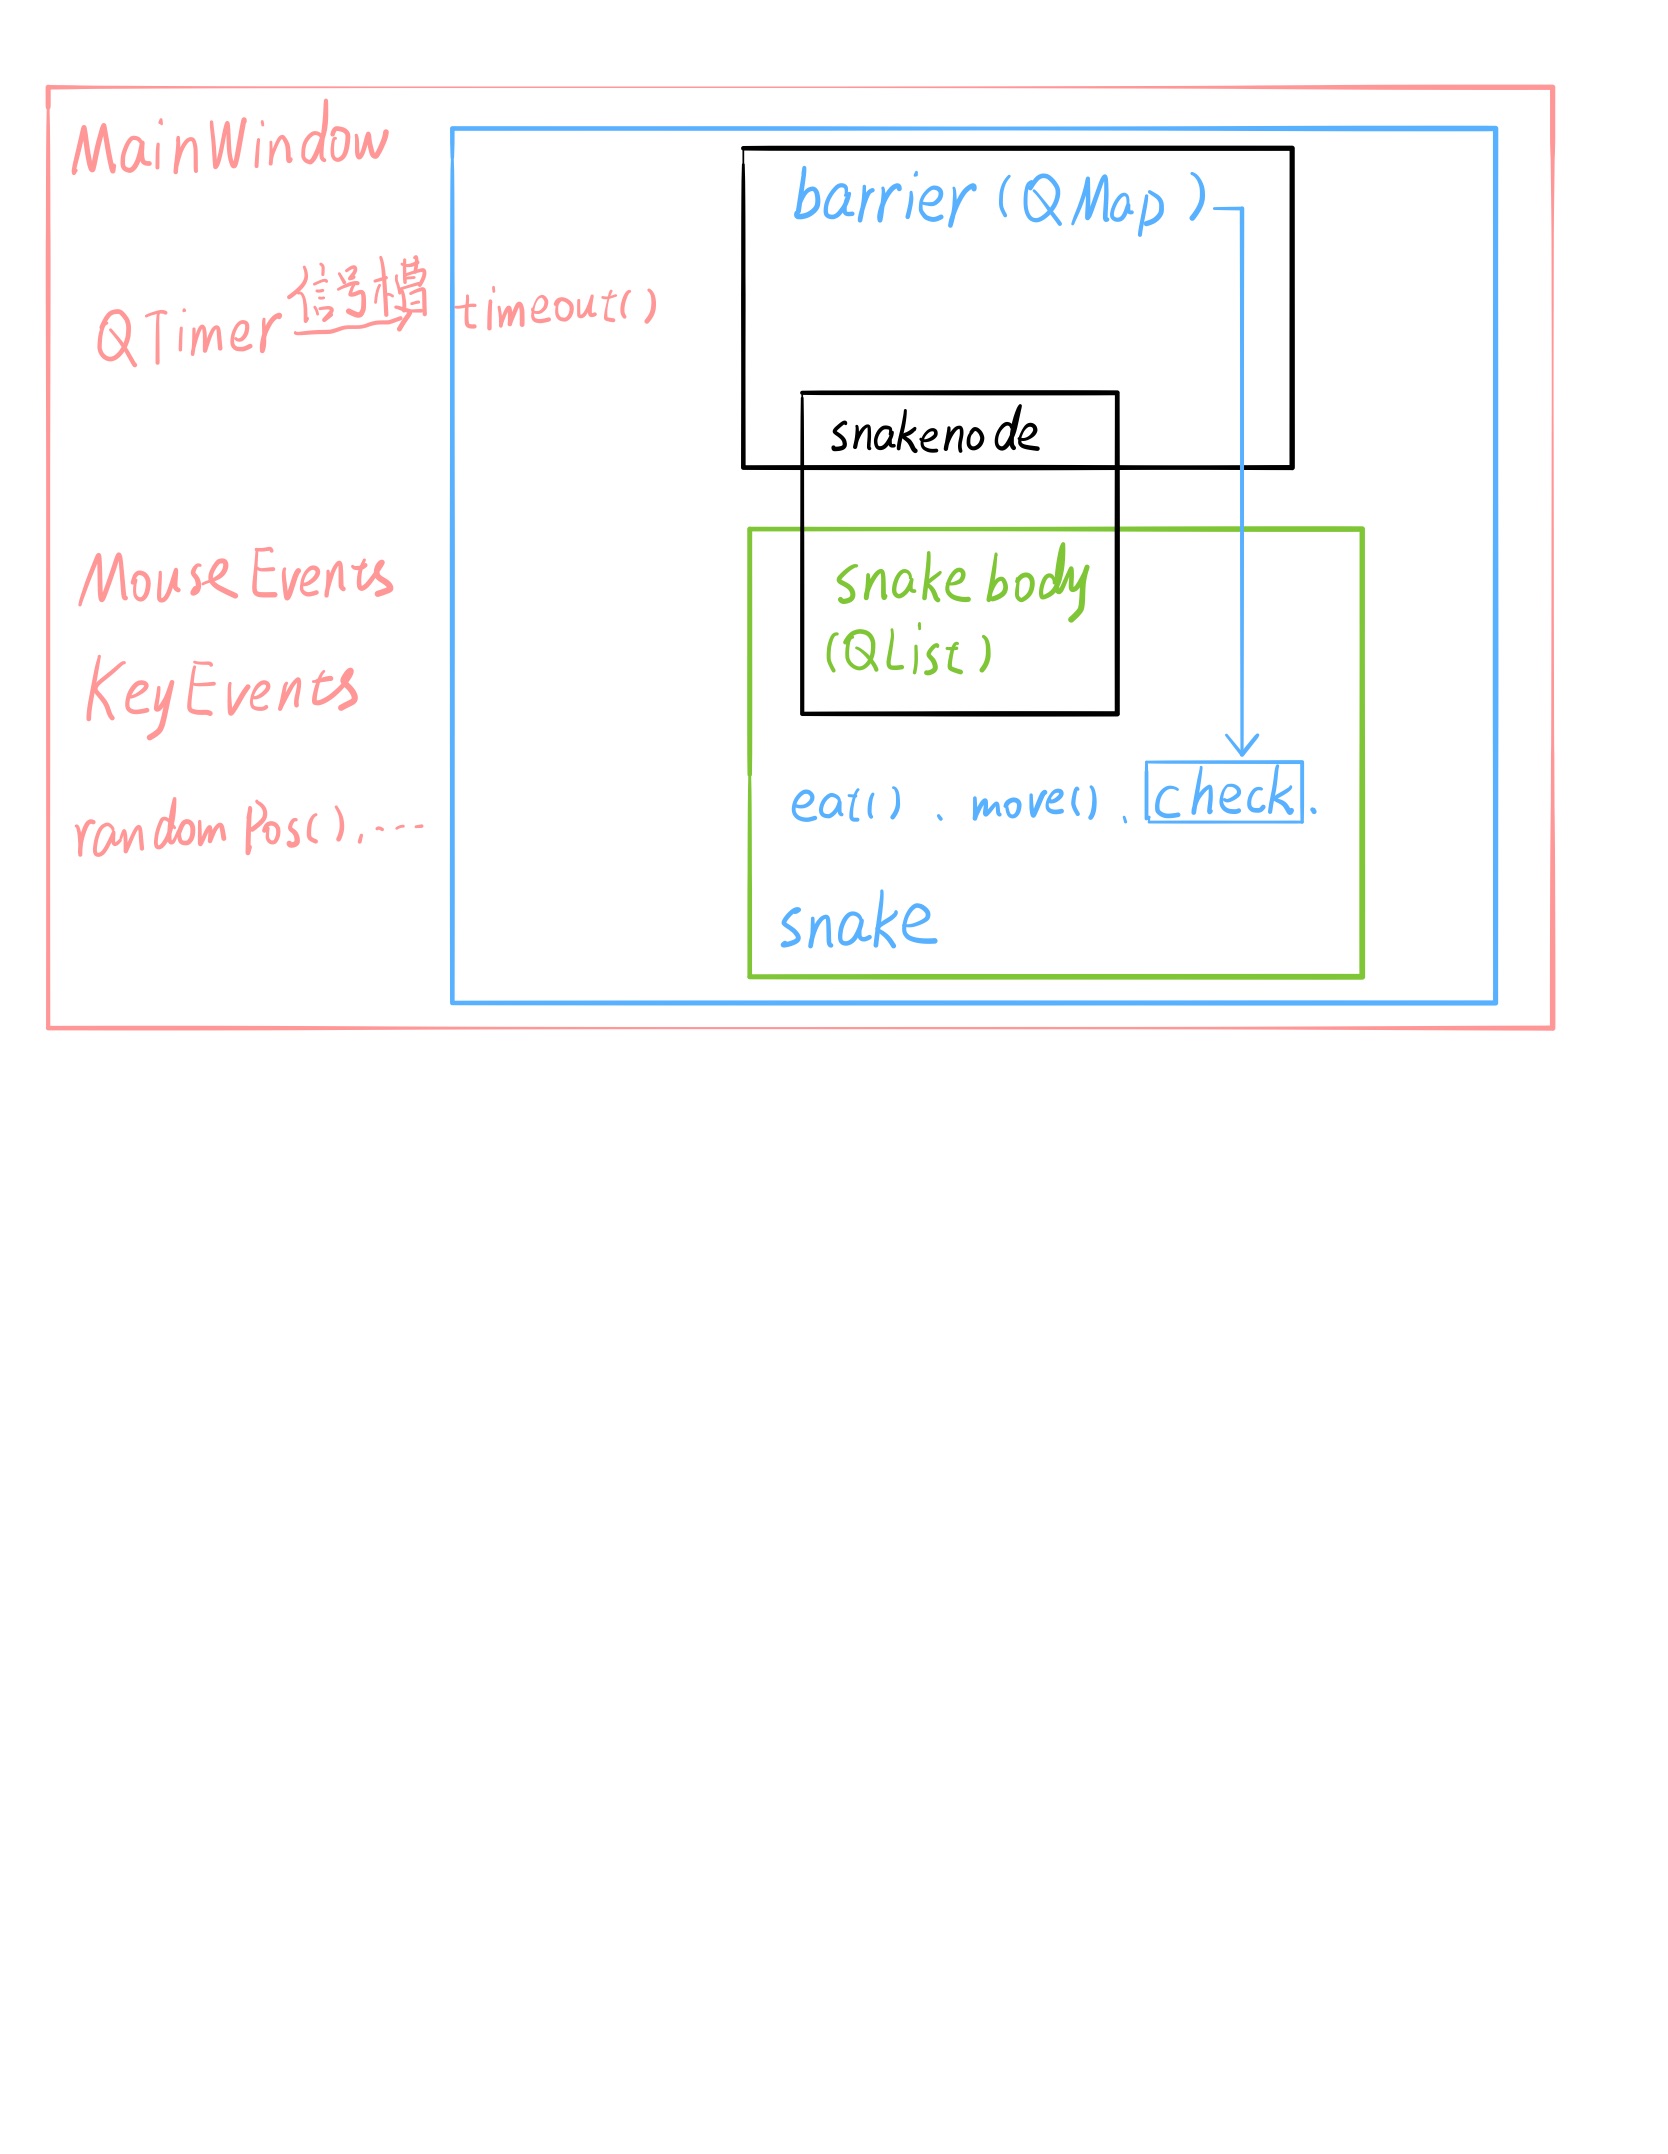 MainWindow
QTimer 信号槽 timeout()
MouseEvents
KeyEvents
randomPos()、----
barrier (QMap)
snakenode
snake body
(QList)
eat() 、 move() 、 check .
snake